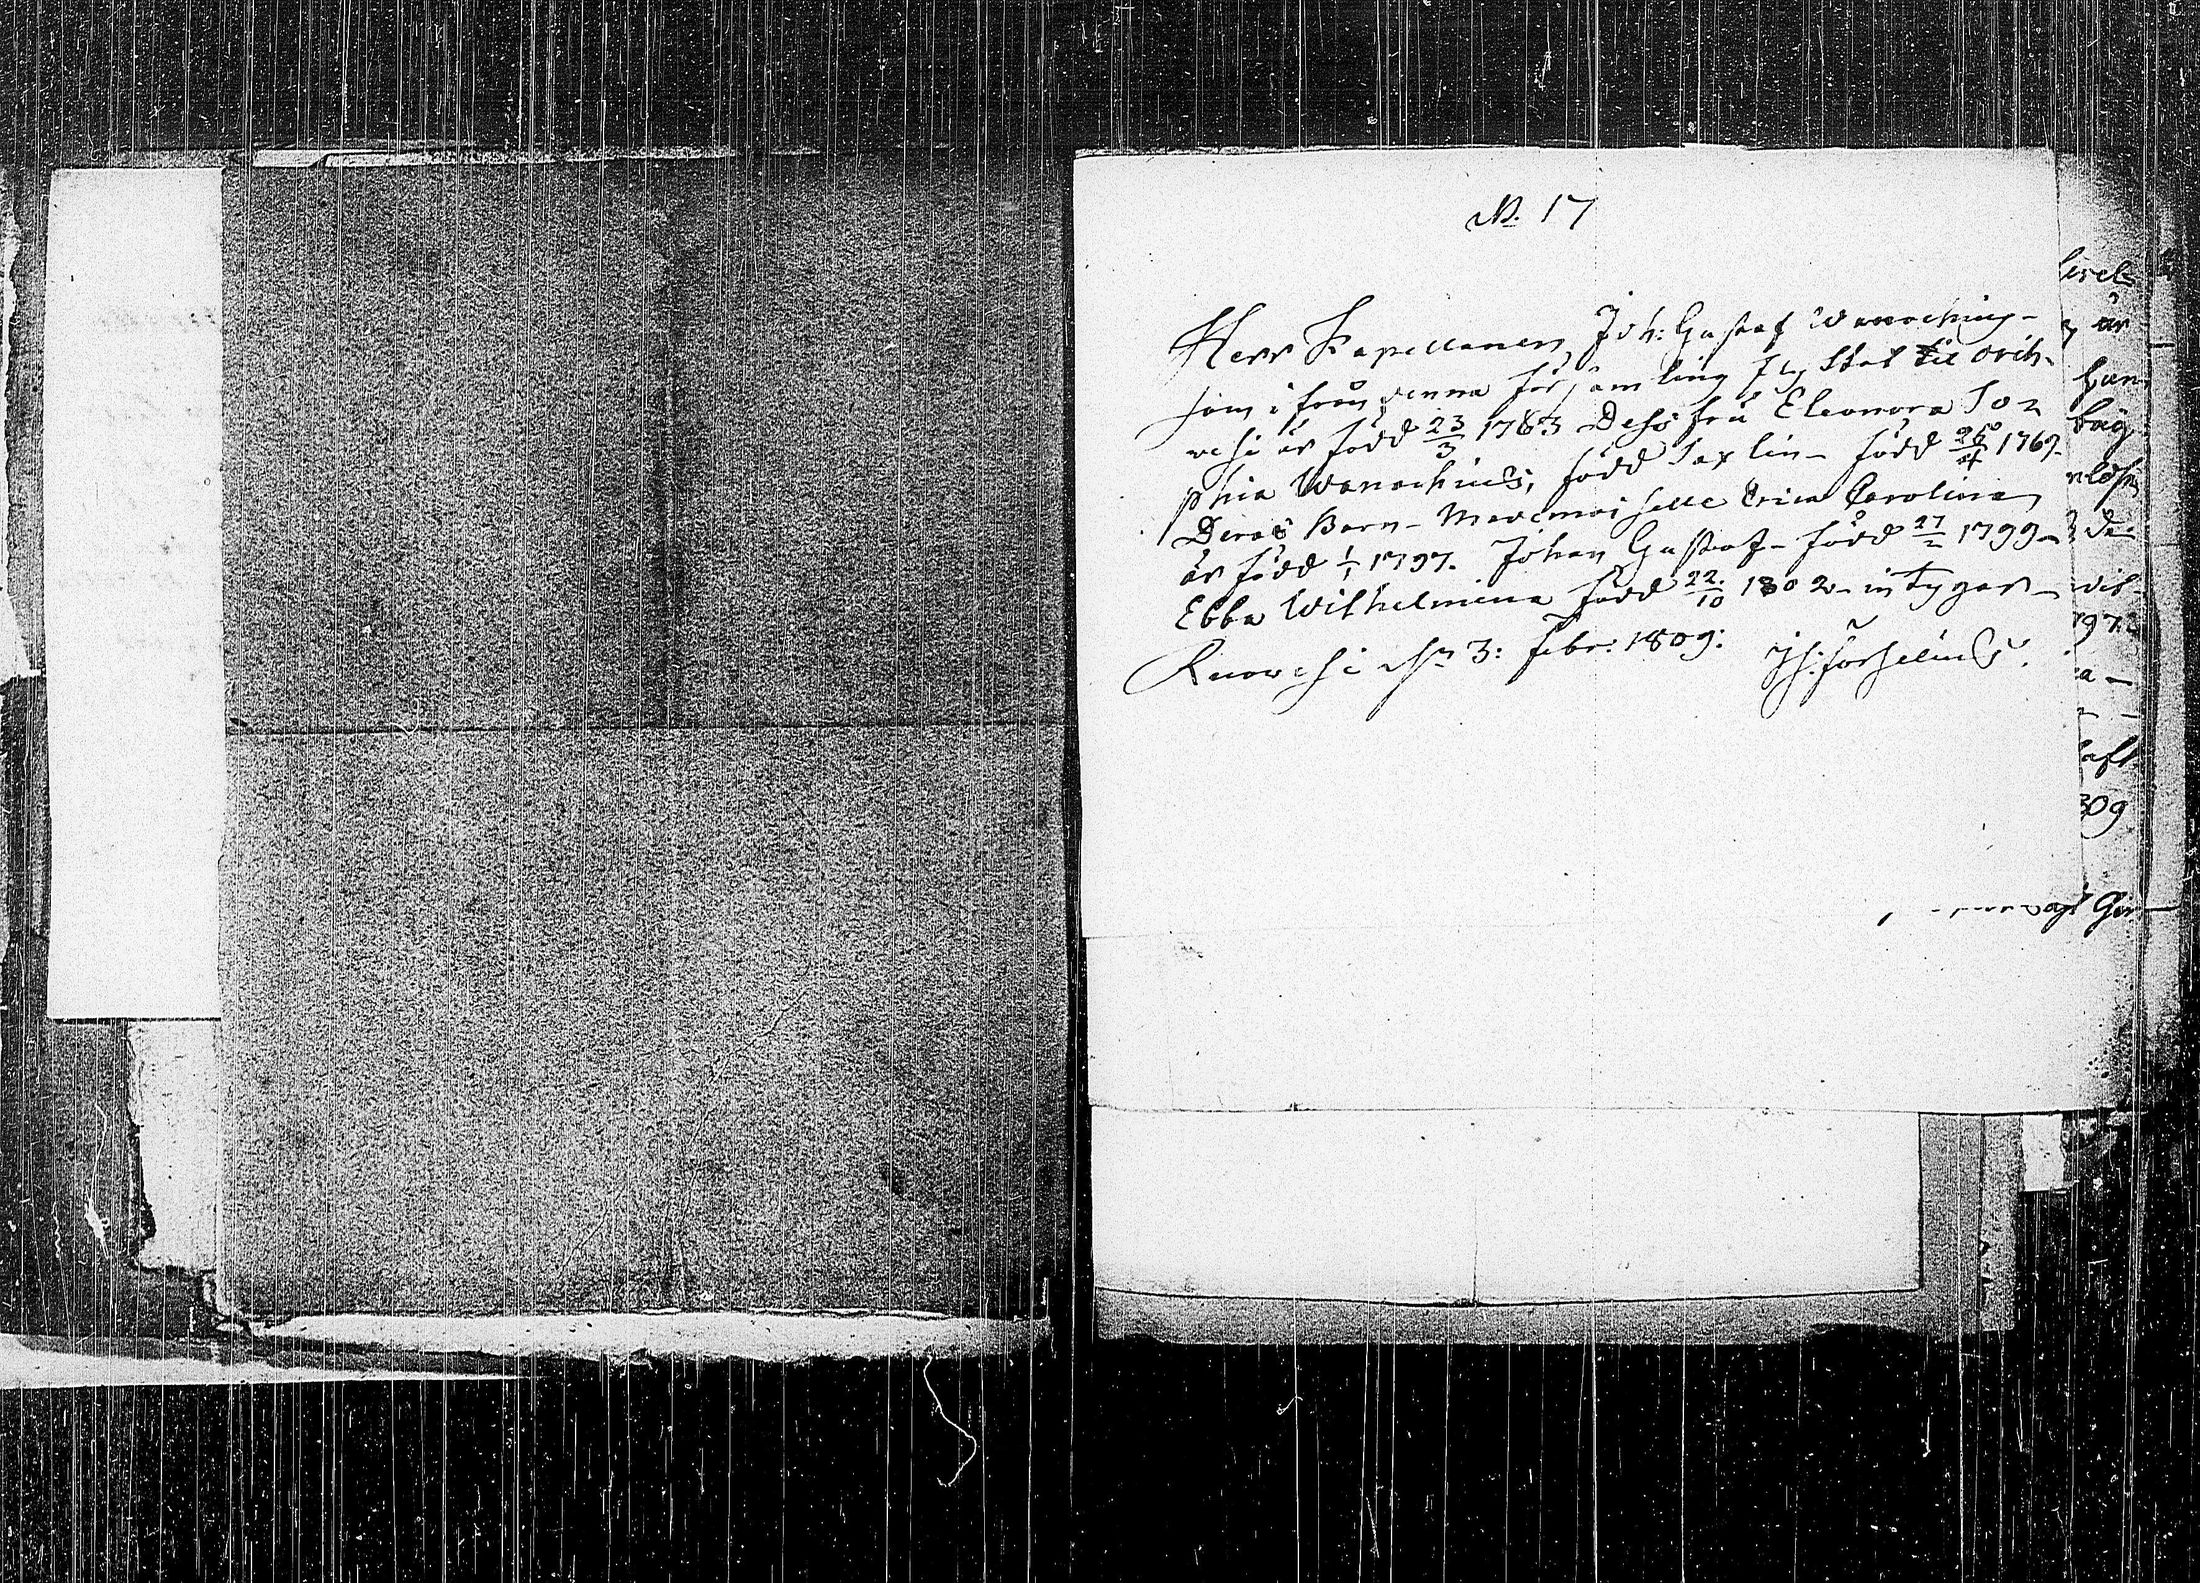 N. 17
Herr Kapellanen Joh: Gustaf Wanochius-
som ifrån denna församling flyttat til Orih-
vesi är född 23/3 1763 Dess fru Eleonora So=
phia Wanochius, född Taxlin- född 26/4 1769.
Deras Barn- Mademoiselle Erica Carolina
är född 1/1 1797. Johan Gustaf- född 27/2 1799-
Ebba Wilhelmina född 22/10 1802- intygar-
Ruovesi d. 3: febr: 1809:
är
de
a -
309